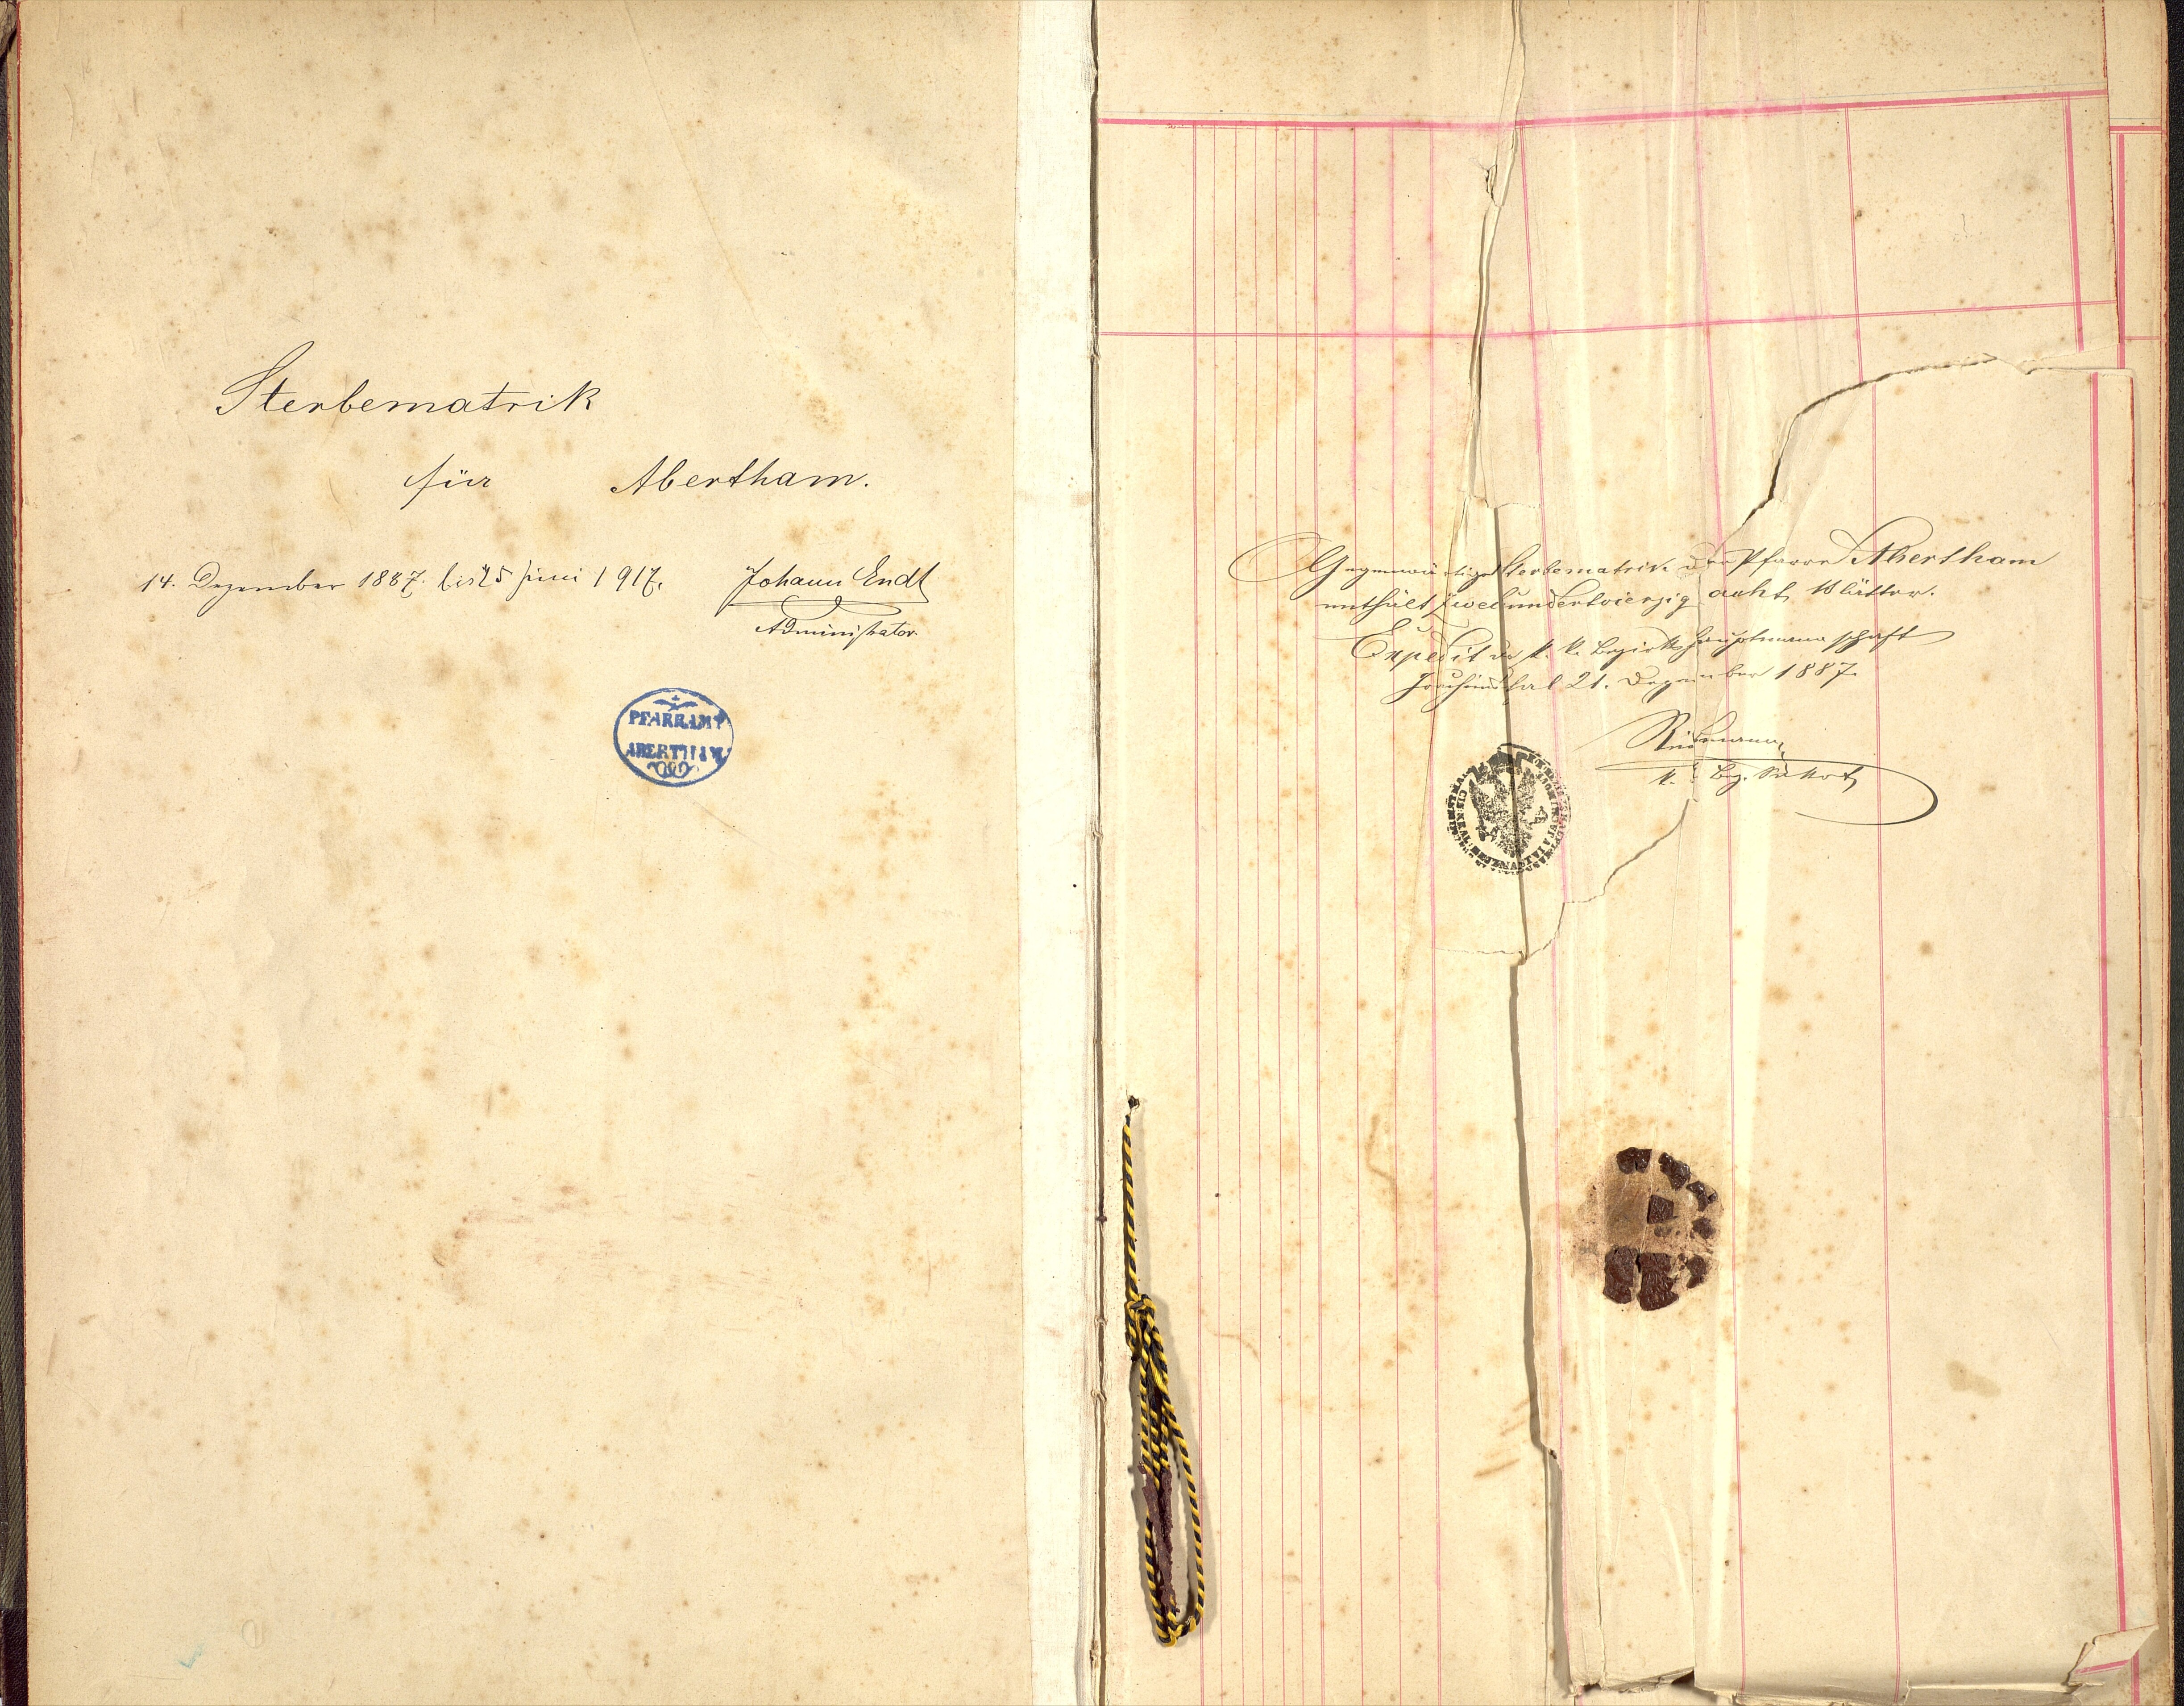 Sterbematrik
für Abertham.
14. Dezember 1887. bis 25 Juni 1917.
Johann Endt
Administrator.
PFARRAMT
ABERTHAM
Gegenwärtige Sterbematrik der Pfarre Abertham
enthält Zweihundertvierzig acht Blätter.
Expedit der k. k. Bezirkshauptmannschaft
Joachimsthal 21. Dezember 1887.
k. k. Bez.